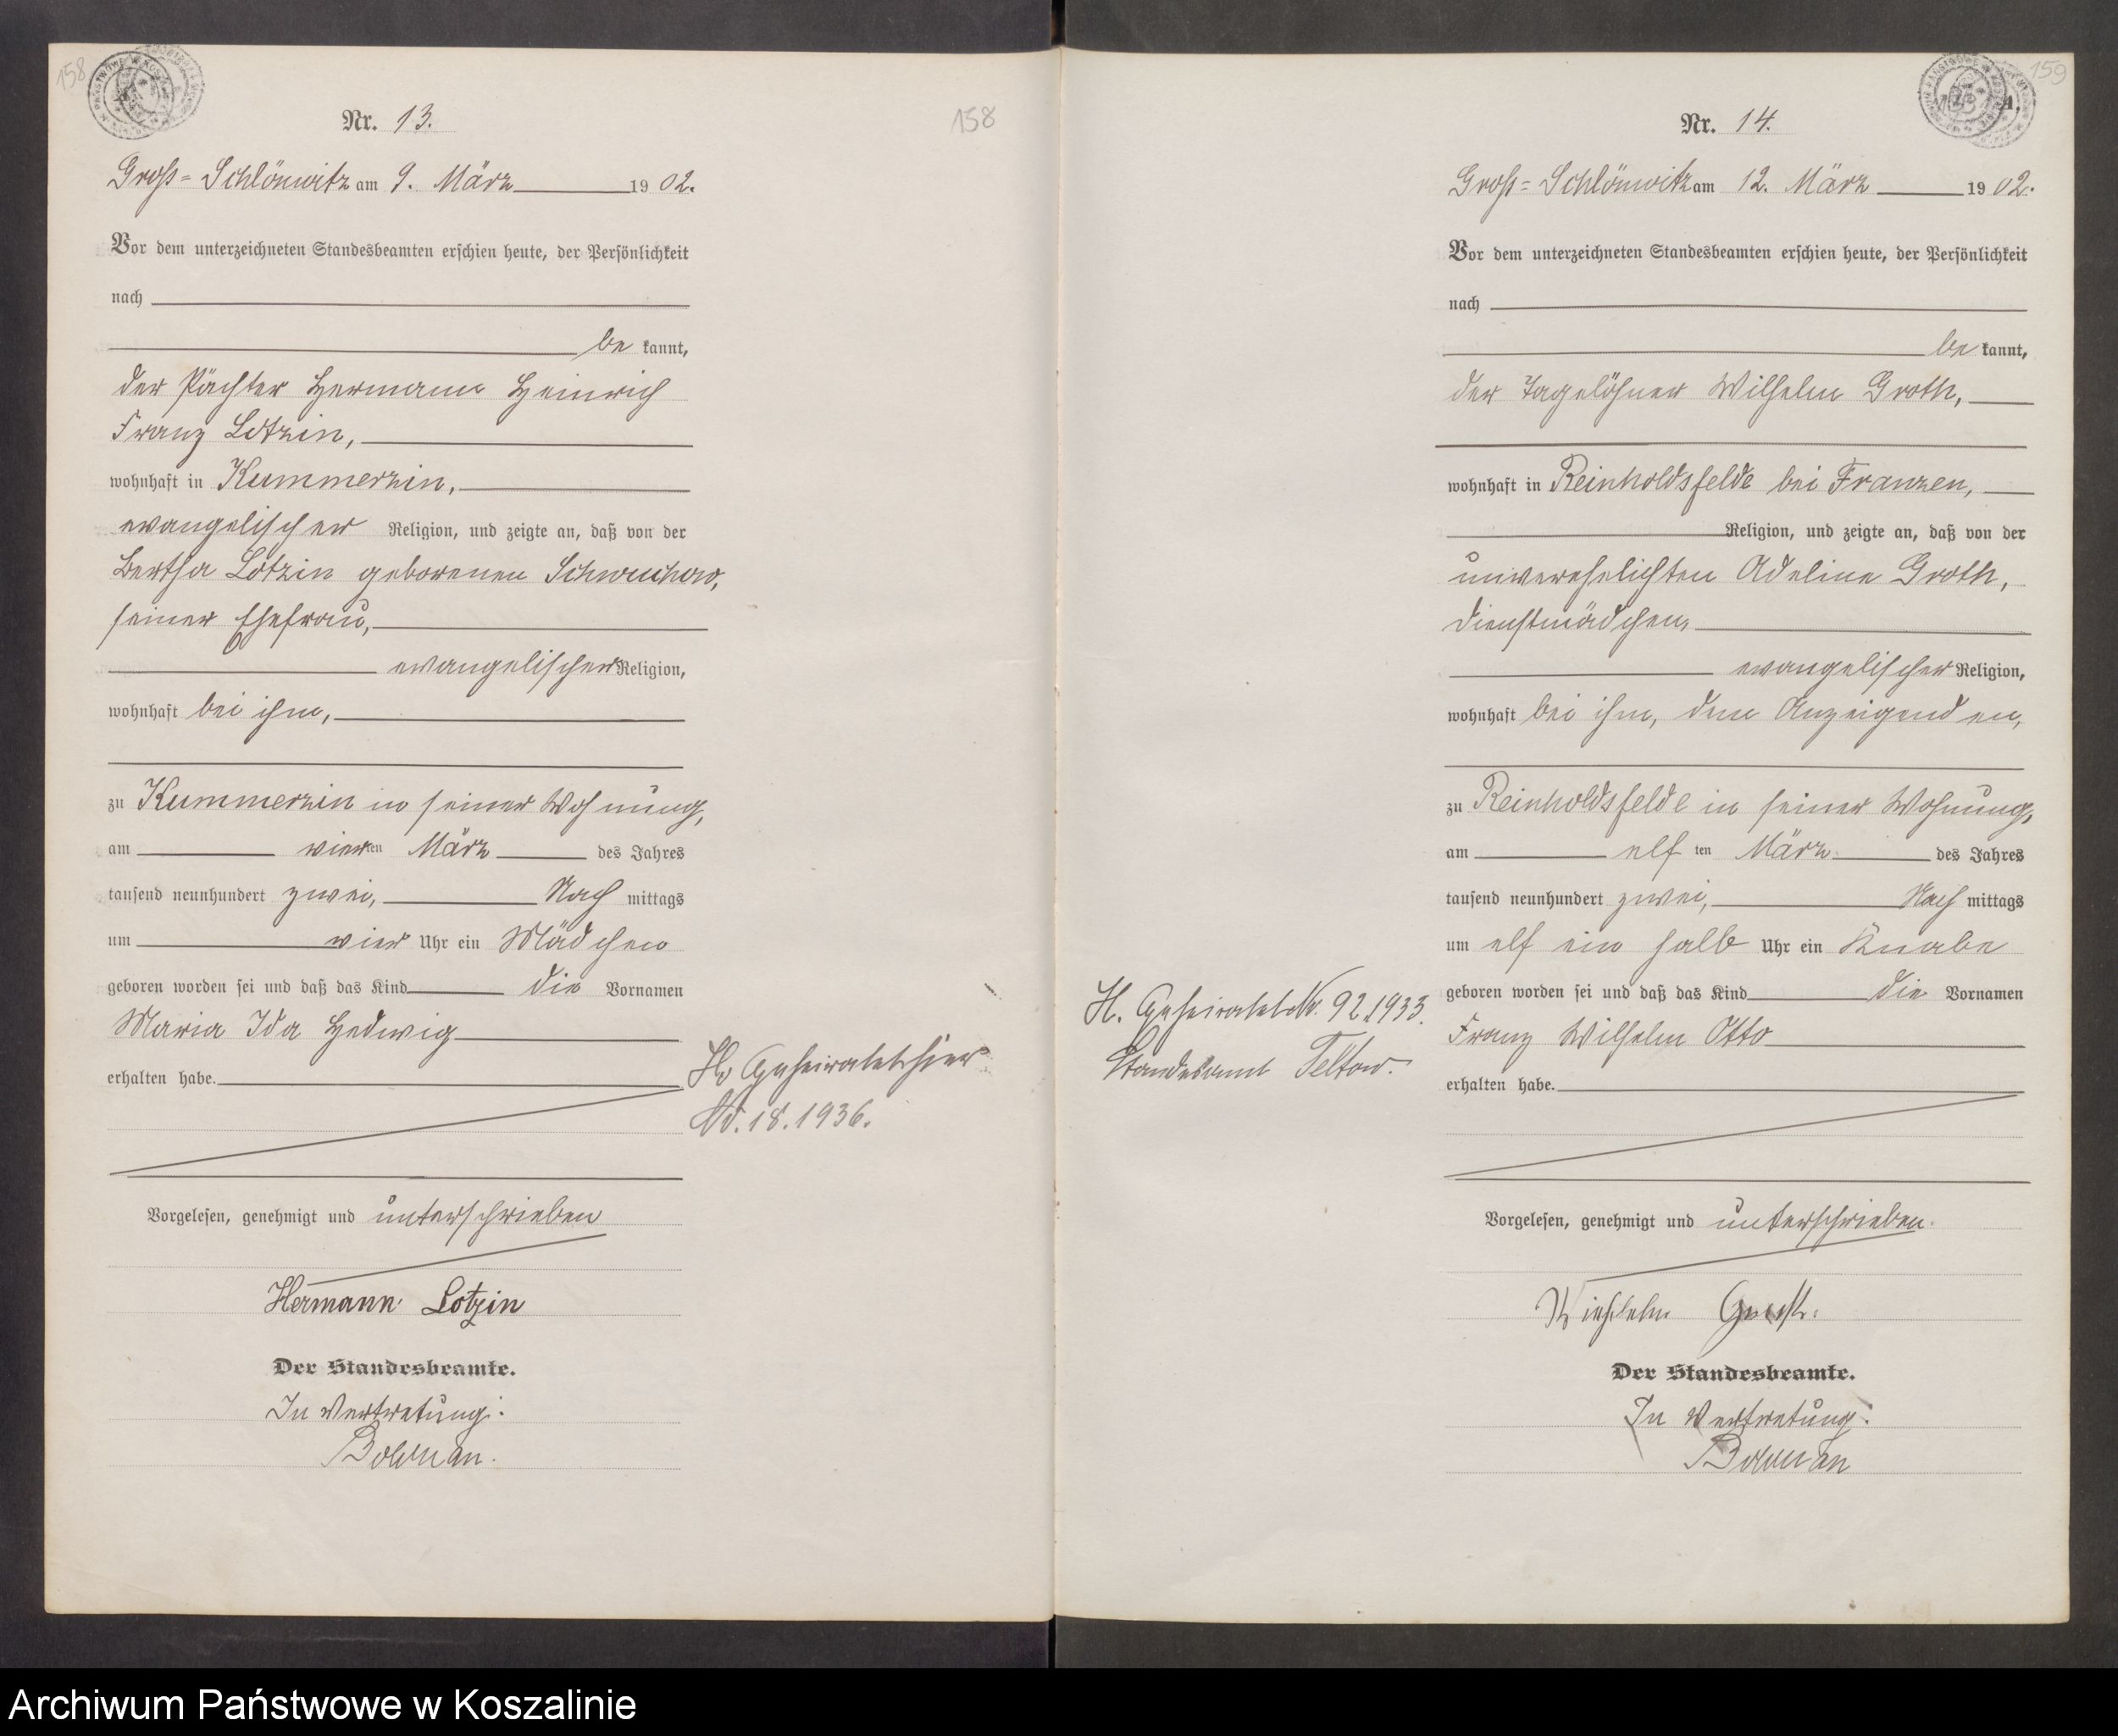 158
Nr. 13.
158
Groß-Schlönwitz am 9. März 1902.
Vor dem unterzeichneten Standesbeamten erschien heute, der Persönlichkeit
nach
be kannt,
der Pächter Hermann Heinrich
Franz Lotzin,
wohnhaft in Kummerzin,
evangelischer Religion, und zeigte an, daß von der
Bertha Lotzin geborenen Schwuchow,
seiner Ehefrau,
evangelischer Religion,
wohnhaft bei ihm,
zu Kummerzin in seiner Wohnung,
am vierten März des Jahres
tausend neunhundert zwei, Nach mittags
um vier Uhr ein Mädchen
geboren worden sei und daß das Kind die Vornamen
Maria Ida Hedwig
erhalten habe.
H. Geheiratet hier
No. 18. 1936.
Vorgelesen, genehmigt und unterschrieben
Hermann Lotzin
Der Standesbeamte.
In Vertretung:
159
Nr. 14.
Groß-Schlönwitz am 12. März 1902.
Vor dem unterzeichneten Standesbeamten erschien heute, der Persönlichkeit
nach
be kannt,
der Tagelöhner Wilhelm Groth,
wohnhaft in Reinholdsfelde bei Franzen,
Religion, und zeigte an, daß von der
unverehelichten Adeline Groth,
Dienstmädchen,
evangelischer Religion,
wohnhaft bei ihm, dem Anzeigenden,
zu Reinholdsfelde in seiner Wohnung,
am elf ten März des Jahres
tausend neunhundert zwei, Nach mittags
um elf ein halb Uhr ein Knabe
geboren worden sei und daß das Kind die Vornamen
Franz Wilhelm Otto
erhalten habe.
H. Geheiratet Nr. 92.1933.
Standesamt Teltow.
Vorgelesen, genehmigt und unterschrieben.
Wilhelm Groth.
Der Standesbeamte.
In Vertretung:
Archiwum Państwowe w Koszalinie